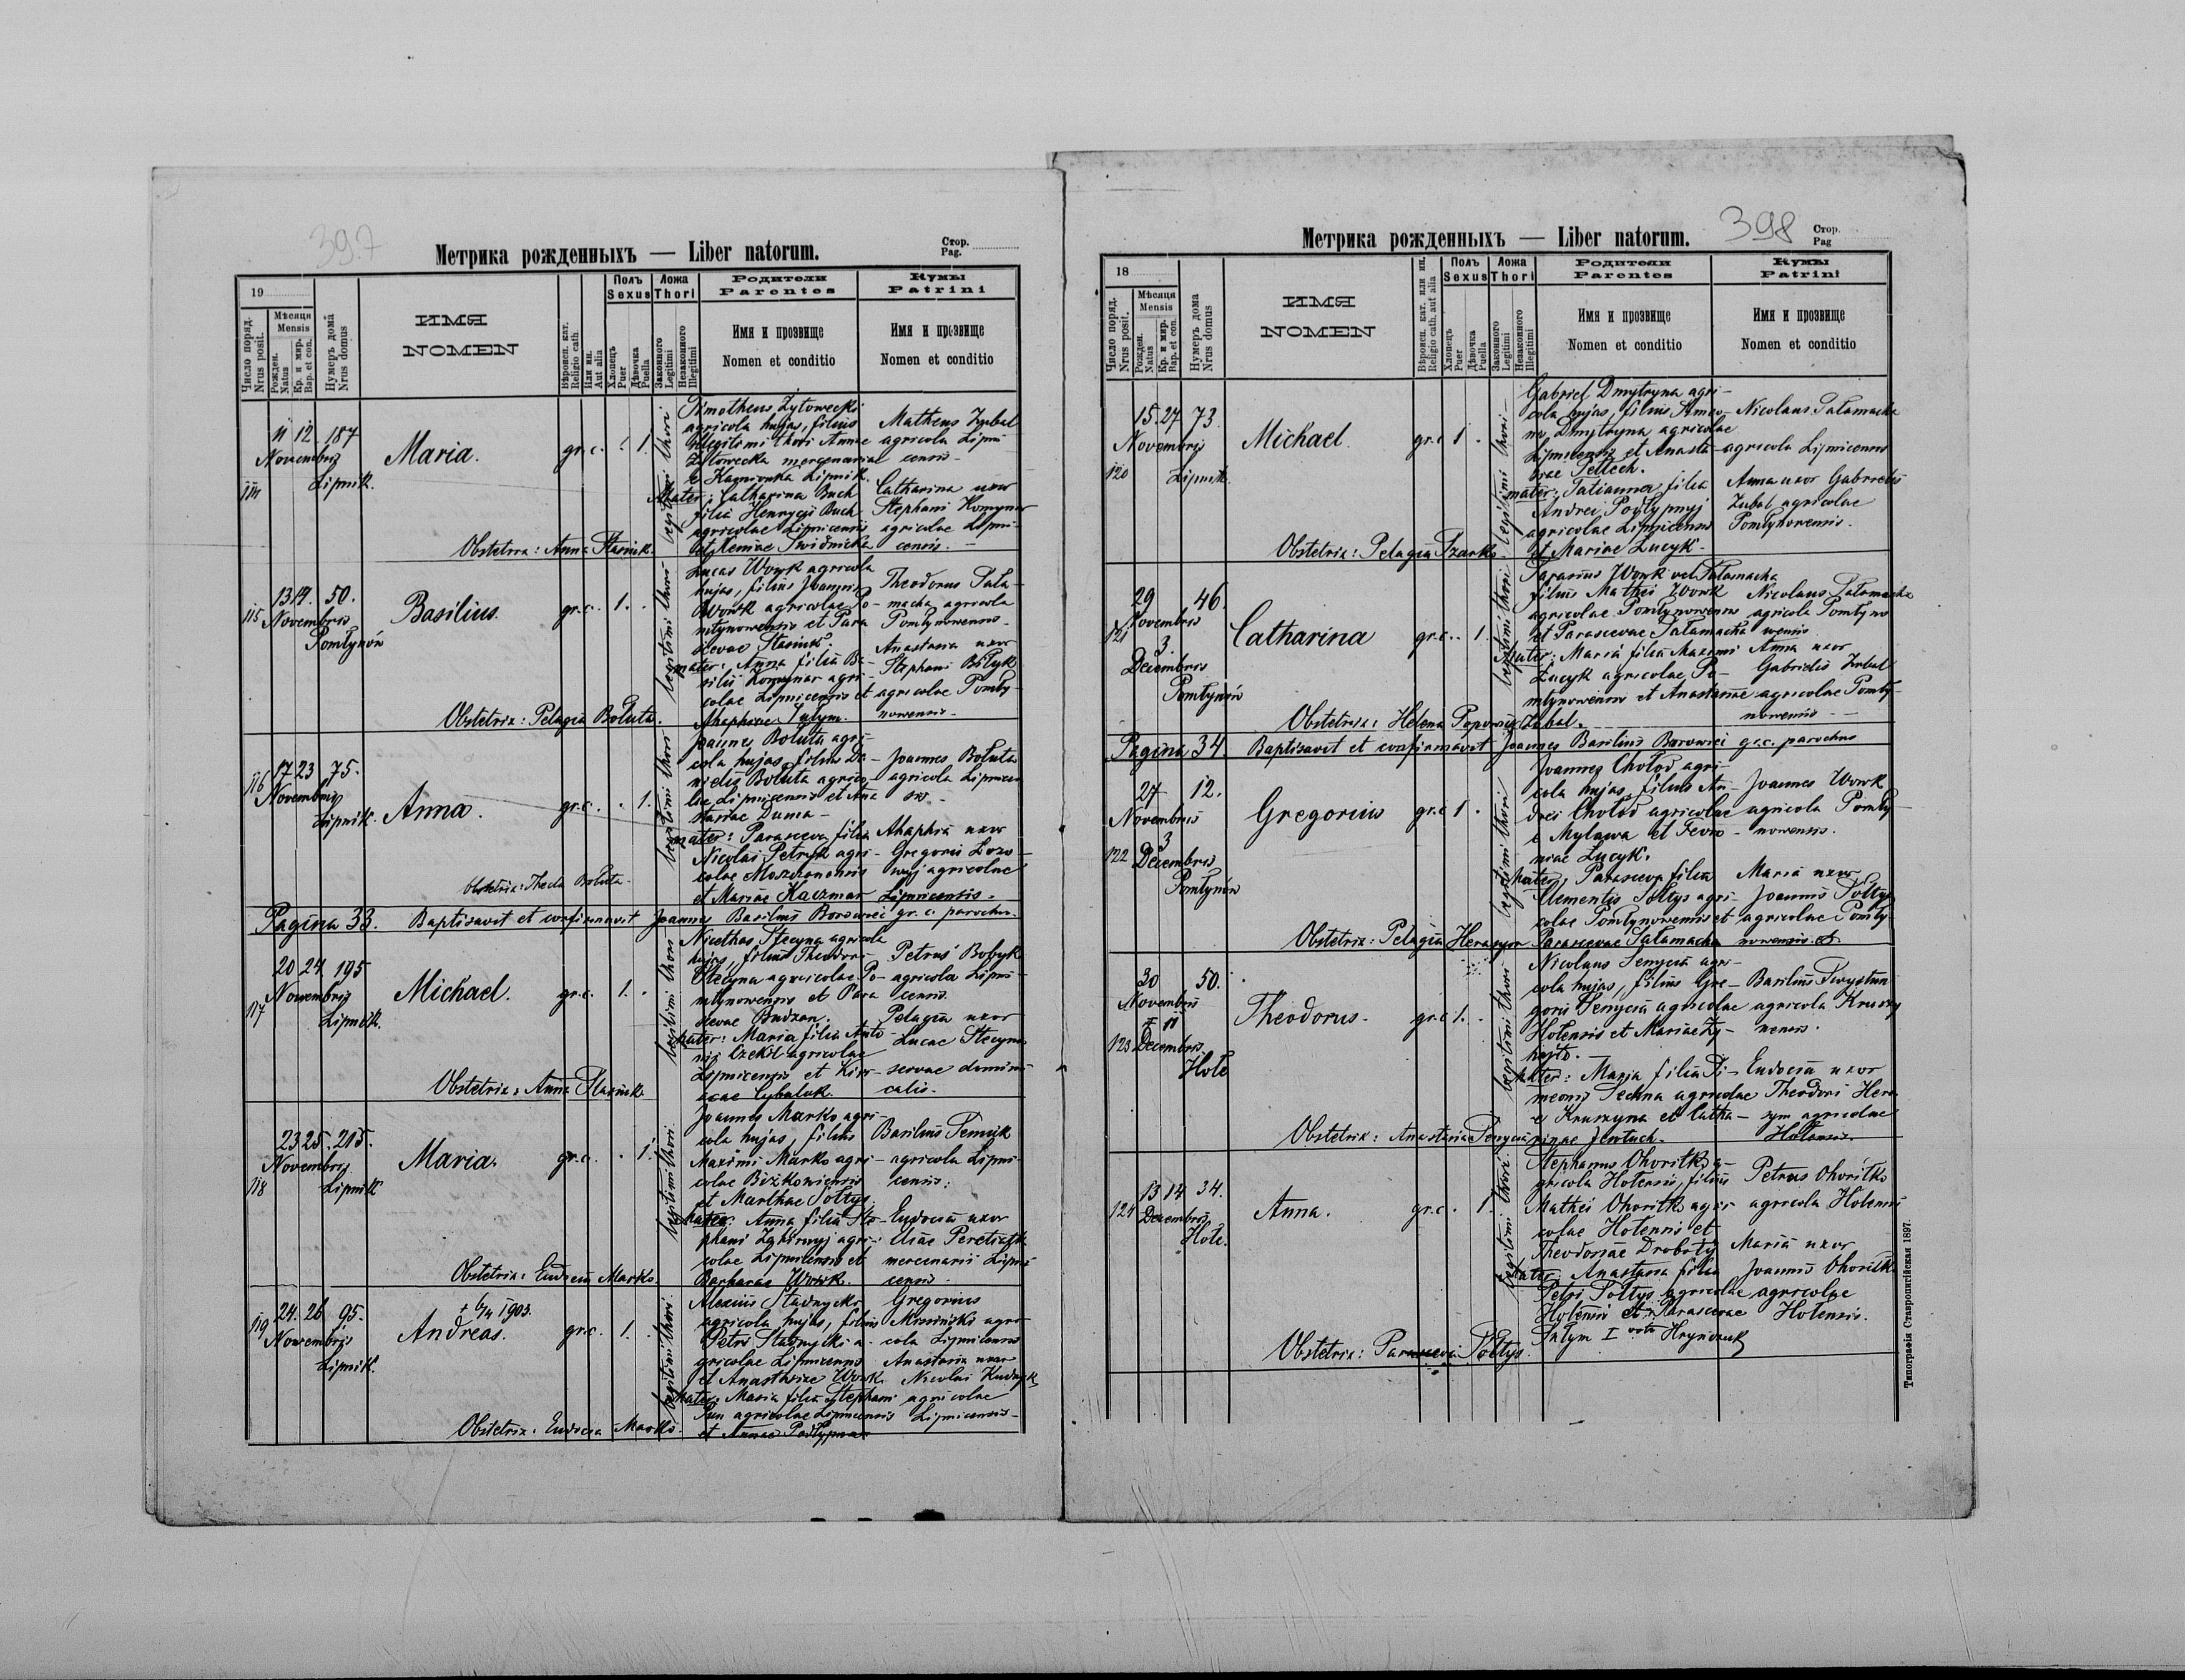 397
Метрика рожденныхъ — Liber natorum.
Стор.
Pag.
19
Число поряд.
Nrus posit.
Мѣсяця
Mensis
Рожден.
Natus
Кр. и мир.
Bap. et con.
Нумеръ дома
Nrus domus
ИМЯ
NOMEN
Вѣроисп. кат.
Religio cath.
или ин.
Aut alia
Полъ
Sexus
Хлопецъ
Puer
Дѣвочка
Puella
Ложа
Thori
Законного
Legitimi
Незаконного
Illegitimi
Родители
Parentes
Имя и прозвище
Nomen et conditio
Кумы
Patrini
Имя и прозвище
Nomen et conditio
11 12 187
Novembris
Lipnik.
Maria.
gr.c. . 1.
legitimi thori
Timotheus Żytowecki
agricola hujas, filius
illegitimi thori Annae
Żytowecka mercenariae
e Kamionka Lipnik.
Mater: Catharina Buch
filia Henryci Buch
agricolae Lipnicensis
et Xeniae Swidnicka
Matheus Zubal
agricola Lipni-
censis -
Catharina uxor
Stephani Komynar
agricolae Lipni-
censis. -
Obstetrix: Anna Stasiuk.
115
13 14. 50.
Novembris
Pomłynów
Basilius.
gr.c. 1. .
legitimi thori
Lucas Wowk agricola
hujas, filius Joannis
Wowk agricolae Po-
mlynowensis et Para
scevae Stasiuk.
mater: Anna filia Ba-
silii Komynar agri-
colae Lipnicensis et
Ahaphiae Tatym.
Theodorus Sała-
macha agricola
Pomlynowensis.
Anastasia uxor
Stephani Biłyk
agricolae Pomły-
nowensis -
Obstetrix: Pelagia Bołuta.
116
17 23 75.
Novembris
Lipnik.
Anna.
gr.c. . 1.
legitimi thori
Joannes Boluta agri-
cola hujas, filius Da-
nielis Boluta agrico-
lae Lipnicensis et Ana
stasiae Duma -
mater: Parasceva filia
Nicolai Petryk agri-
colae
et Mariae Kaczmar
Joannes Bołuta
agricola Lipnicen
sis -
Ahaphia uxor
Gregorii Lozo-
wyj agricolae
Lipnicensis.
Obstetrix: Thecla Boluta.
Pagina 33. Baptisavit et confirmavit Joannes Basilius Borowiei gr. c. parochus.
117
20 24 195
Novembris
Lipnik.
Michael.
gr.c. 1. .
legitimi thori
Nicethas Stecyna agricola
hujas, filius Theodori
Stecyna agricolae Po-
mlynowensis et Para
scevae Budzan.
mater: Maria filia Anto-
nii Czekił agricolae
Lipnicensis et
Cybaluk.
Petrus Bobyk
agricola Lipni-
censis.
Pelagia uxor
Lucae Stecyna
servae domini
calis.
Obstetrix: Anna Stasiuk.
118
23 25 215.
Novembris
Lipnik
Maria.
gr.c. . 1.
legitimi thori
Joannes Marko agri-
cola hujas, filius
Maximi Marko agri-
colae Biżkowiensis
et Marthae Sołtys.
mater: Anna filia Ste-
phani agri-
colae Lipnicensis et
Barbarae Wowk.
Basilius Semik
agricola Lipni-
censis.
Eudocia uxor
mercenarii Lipni
censis.
Obstetrix: Eudocia Marko.
119
24. 26 95.
Novembris
Lipnik.
1903.
Andreas.
gr.c. 1. .
legitimi thori
Alexius Stadnycki
agricola hujas, filius
Petri Stadnycki a-
gricolae Lipnicensis
et Anastasiae Wowk
mater: Maria filia Stephani
agricolae Lipnicensis
et Annae
Gregorius
agri-
cola Lipnicensis
Anastasia uxor
Nicolai
agricolae
Lipnicensis -
Obstetrix: Eudocia Marko.
398
Метрика рожденныхъ — Liber natorum.
Стор.
Pag
18
Число поряд.
Nrus posit.
Мѣсяця
Mensis
Рожден.
Natus
Кр. и мир.
Bap. et con.
Нумеръ дома
Nrus domus
ИМЯ
NOMEN
Вѣроисп. кат. или ин.
Religio cath. aut alia
Полъ
Sexus
Хлопецъ
Puer
Дѣвочка
Puella
Ложа
Thori
Законного
Legitimi
Незаконного
Illegitimi
Родители
Parentes
Имя и прозвище
Nomen et conditio
Кумы
Patrini
Имя и прозвище
Nomen et conditio
120
15. 27 73
Novembris
Lipnik.
Michael.
gr.c 1 .
legitimi thori
Gabriel Dmytryna agri-
cola hujas, filius Simeo-
nis Dmytryna agricolae
Lipnicensis et Anasta-
siae Tellech.
mater: Tatianna filia
Andrei Podłypnyj
agricolae Lipnicensis
et Mariae Łucyk.
Nicolaus Sałamacha
agricola Lipnicensis
Anna uxor Gabrielis
Zubal agricolae
Pomłynowensis.
Obstetrix: Pelagia
121
29 46.
Novembris
3.
Decembris
Pomłynów
Catharina
gr.c. . 1.
legitimi thori
Tarasius Wowk vel Sałamacha
filius Mathei Wowk
agricolae Pomłynowensis
et Parascevae Sałamacha
Mater: Maria filia Maximi
Łucyk agricolae Po-
mlynowensis et Anastasiae
Nicolaus Sałamacha
agricola Pomłyno
wensis
Anna uxor
Gabrielis Zubal
agricolae Pomły-
nowensis -
Obstetrix: Helena Popowicz Zubal.
Pagina 34. Baptisavit et confirmavit Joannes Basilius Borowiei gr.c. parochus
122
27 12.
Novembris
3
Decembris
Pomłynów
Gregorius
gr.c 1 .
legitimi thori
Joannes Chołod agri-
cola hujas, filius An-
drei Chołod agricolae
e Mylawa et Fevro-
niae Łucyk.
Mater: Parasceva filia
Clementis Soltys agri-
colae Pomłynowensis et
Parascevae Sałamacha
Joannes Wowk
agricola Pomły-
nowensis.
Maria uxor
Joannis Sołtys
agricolae Pomły-
nowensis.
Obstetrix: Pelagia Herasym
123
30 50.
Novembris
11
Decembris
Hołe
Theodorus.
gr.c 1. .
legitimi thori
Nicolaus Senycia agri-
cola hujas, filius Gre-
gorii Senycia agricolae
Holensis et Mariae
Mater: Maria filia Si-
meonis Sechna agricolae
e Kruszyna et Catha-
rinae
Basilius
agricola Kruszy
nensis.
Eudocia uxor
Theodori Hera
sym agricolae
Holensis.
Obstetrix: Anastasia Senycia
124
13 14 34.
Decembris
Hołe.
Anna.
gr.c. . 1.
legitimi thori
Stephanus Ohoritko a-
gricola Holensis, filius
Mathei Ohoritko agri-
colae Holensis et
Theodosiae Droboty
Mater: Anastasia filia
Petri Sołtys agricolae
Holensis et Parascevae
Tatym I voto Hrynczuk
Petrus Ohoritko
agricola Holensis
Maria uxor
Joannis Ohoritko
agricolae
Holensis.
Obstetrix: Parasceva Sołtys.
Типографія Ставропигійская 1897.